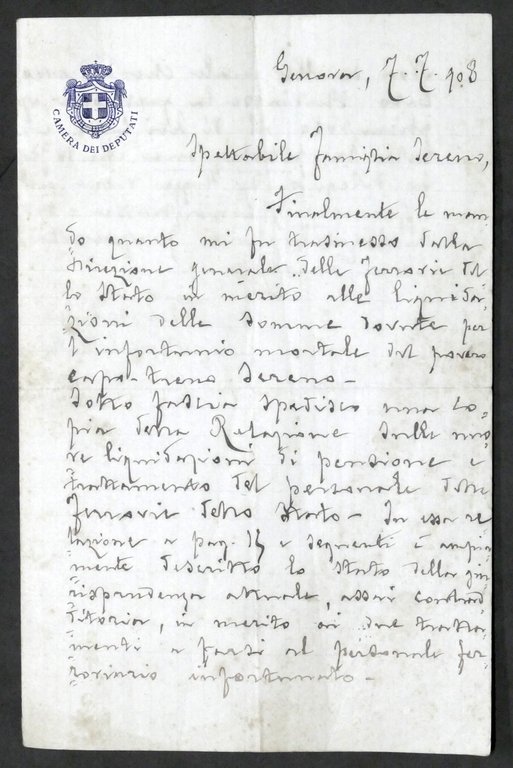 CAMERA DEI DEPUTATI
Genova, 7. 7. 908
Spettabile famiglia Sereno,
Finalmente le man-
do quanto mi fu trasmesso dalla
Direzione generale delle Ferrovie del-
lo Stato in merito alle liquida-
zioni delle somme dovute per
l'infortunio mortale del povero
capo-treno Sereno -
Sotto fascia spedisco una co-
pia della Relazione sulle nuo-
ve liquidazioni di pensione e
trattamento del personale delle
Ferrovie dello Stato - In essa re-
lazione a pag. e seguenti è ampia-
mente descritto lo stato della giu-
risprudenza attuale, assai contrad-
ditoria, in merito ai due tratta-
menti a farsi al personale fer-
roviario infortunato -